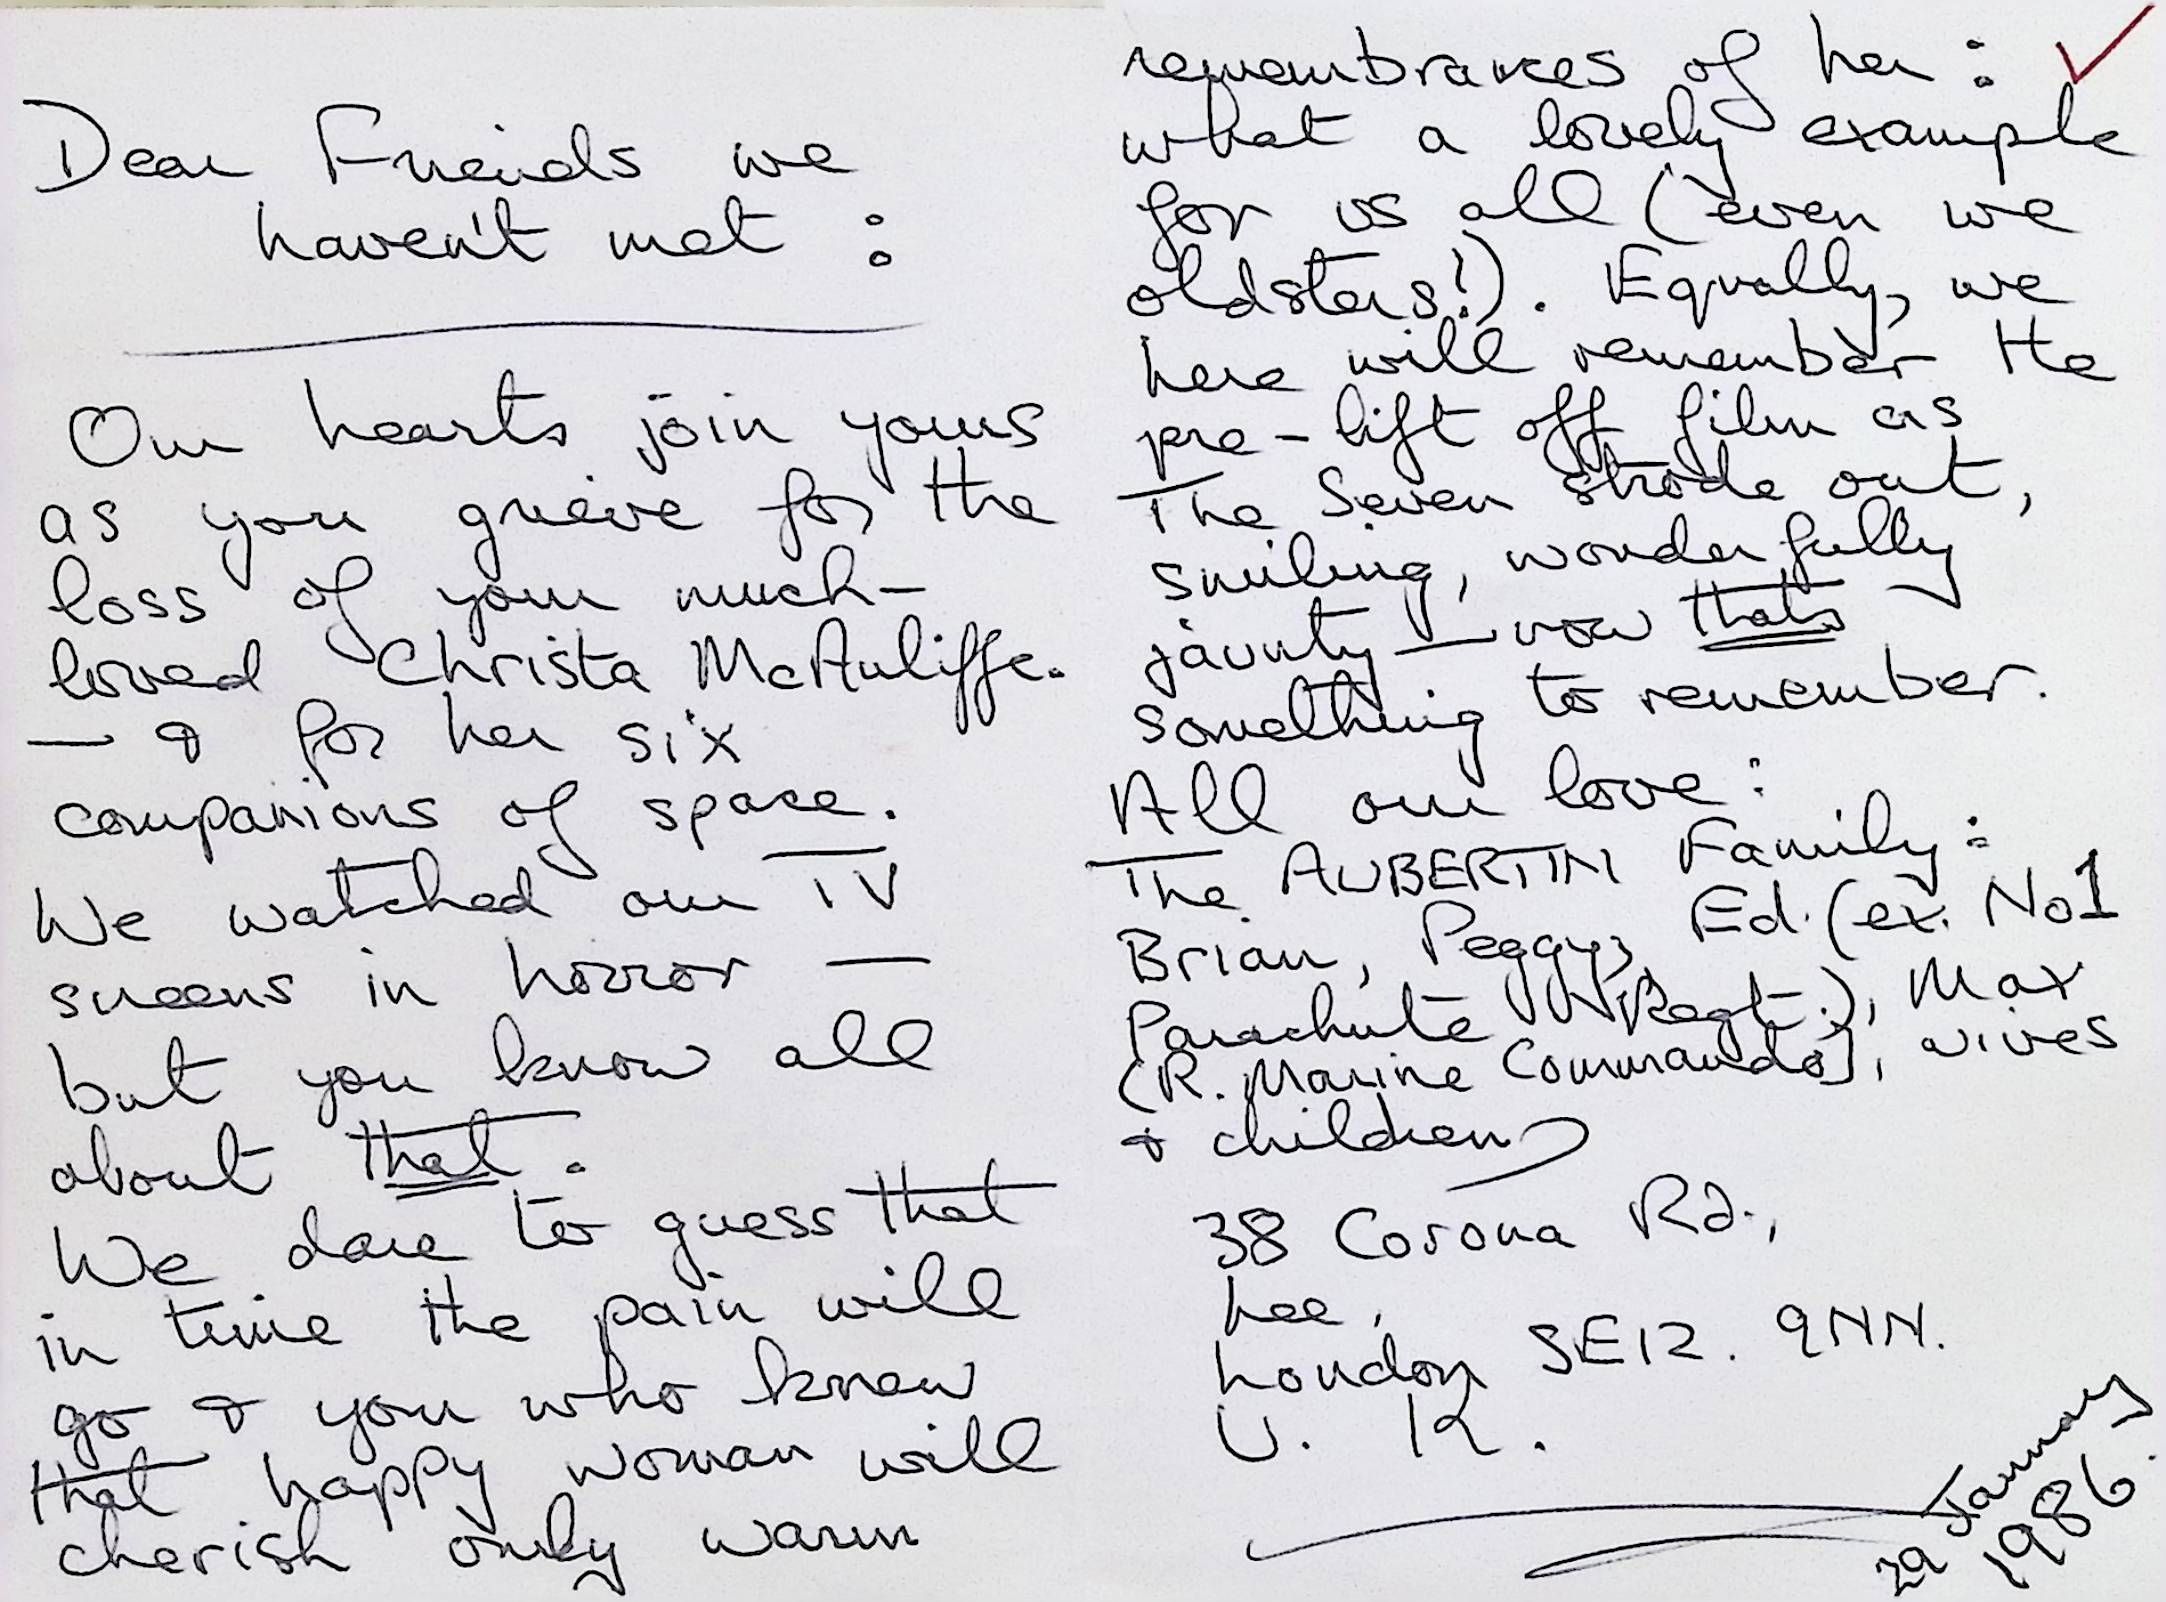 Dear Friends we
haven't met :
Our hearts join yours
as you grieve for the
loss of your much-
loved Christa McAuliffe.
— & for her six
companions of space.
We watched our TV
screens in horror —
but you know all
about that.
We dare to guess that
in time the pain will
go & you who knew
that happy woman will
cherish only warm
remembrances of her :
what a lovely example
for us all (even we
oldsters!). Equally, we
here will remember the
pre-lift off film as
The Seven strode out,
smiling, wonderfully
jaunty — now that's
something to remember.
All our love :
The AUBERTIN Family :
Brian, Peggy, Ed. (ex. No1
Parachute Regt.), Max
(R. Marine Commando), wives
& children
38 Corona Rd.,
Lee,
London SE12. 9NN.
U. K.
29 January
1986.